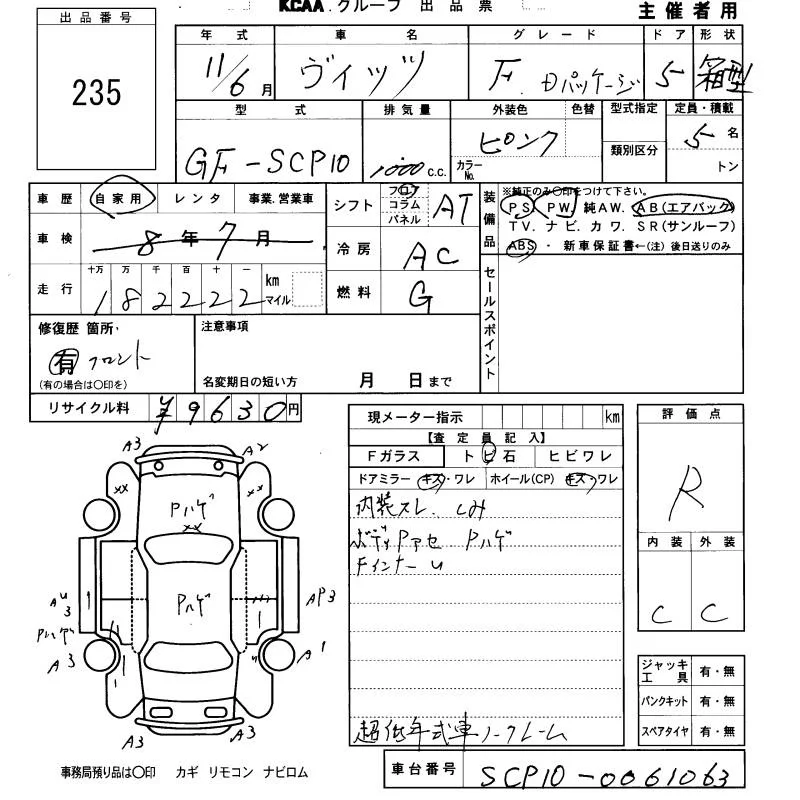 KCAA.グループ 出品票
主催者用
出品番号
235
年式 車名 グレード ドア 形状
11/6月 ヴィッツ F.Dパッケージ 5 箱型
型式 排気量 外装色 色替 型式指定 定員・積載
GF-SCP10 1000 c.c. ピンク 5 名
カラーNo. 類別区分 トン
車歴 自家用 レンタ 事業.営業車
車検 8年7月
走行 十万 万 千 百 十 一 km マイル
182222
シフト フロア コラム パネル AT
冷房 AC
燃料 G
装備品 ※純正のみ○印をつけて下さい。
PS. PW. 純AW. AB(エアバック)
TV. ナビ. カワ. SR(サンルーフ)
ABS ・ 新車保証書←(注) 後日送りのみ
セールスポイント
修復歴 箇所・
有 フロント
(有の場合は○印を)
注意事項
名変期日の短い方 月 日まで
リサイクル料 ¥9630円
現メーター指示 km
【査定員記入】
Fガラス トビ石 ヒビワレ
ドアミラー キズ・ワレ ホイール(CP) キズ・ワレ
内装スレ.シミ
ボディPアセ Pハゲ
FインナーU
超低年式車ノークレーム
評価点
R
内装 外装
C C
ジャッキ工具 有・無
パンクキット 有・無
スペアタイヤ 有・無
車台番号 SCP10-0061063
A3 A2
XX XX
Pハゲ
XX
Pハゲ
AU3 AP3
Pハゲ
A3 A1
A3 A3
事務局預り品は○印 カギ リモコン ナビロム